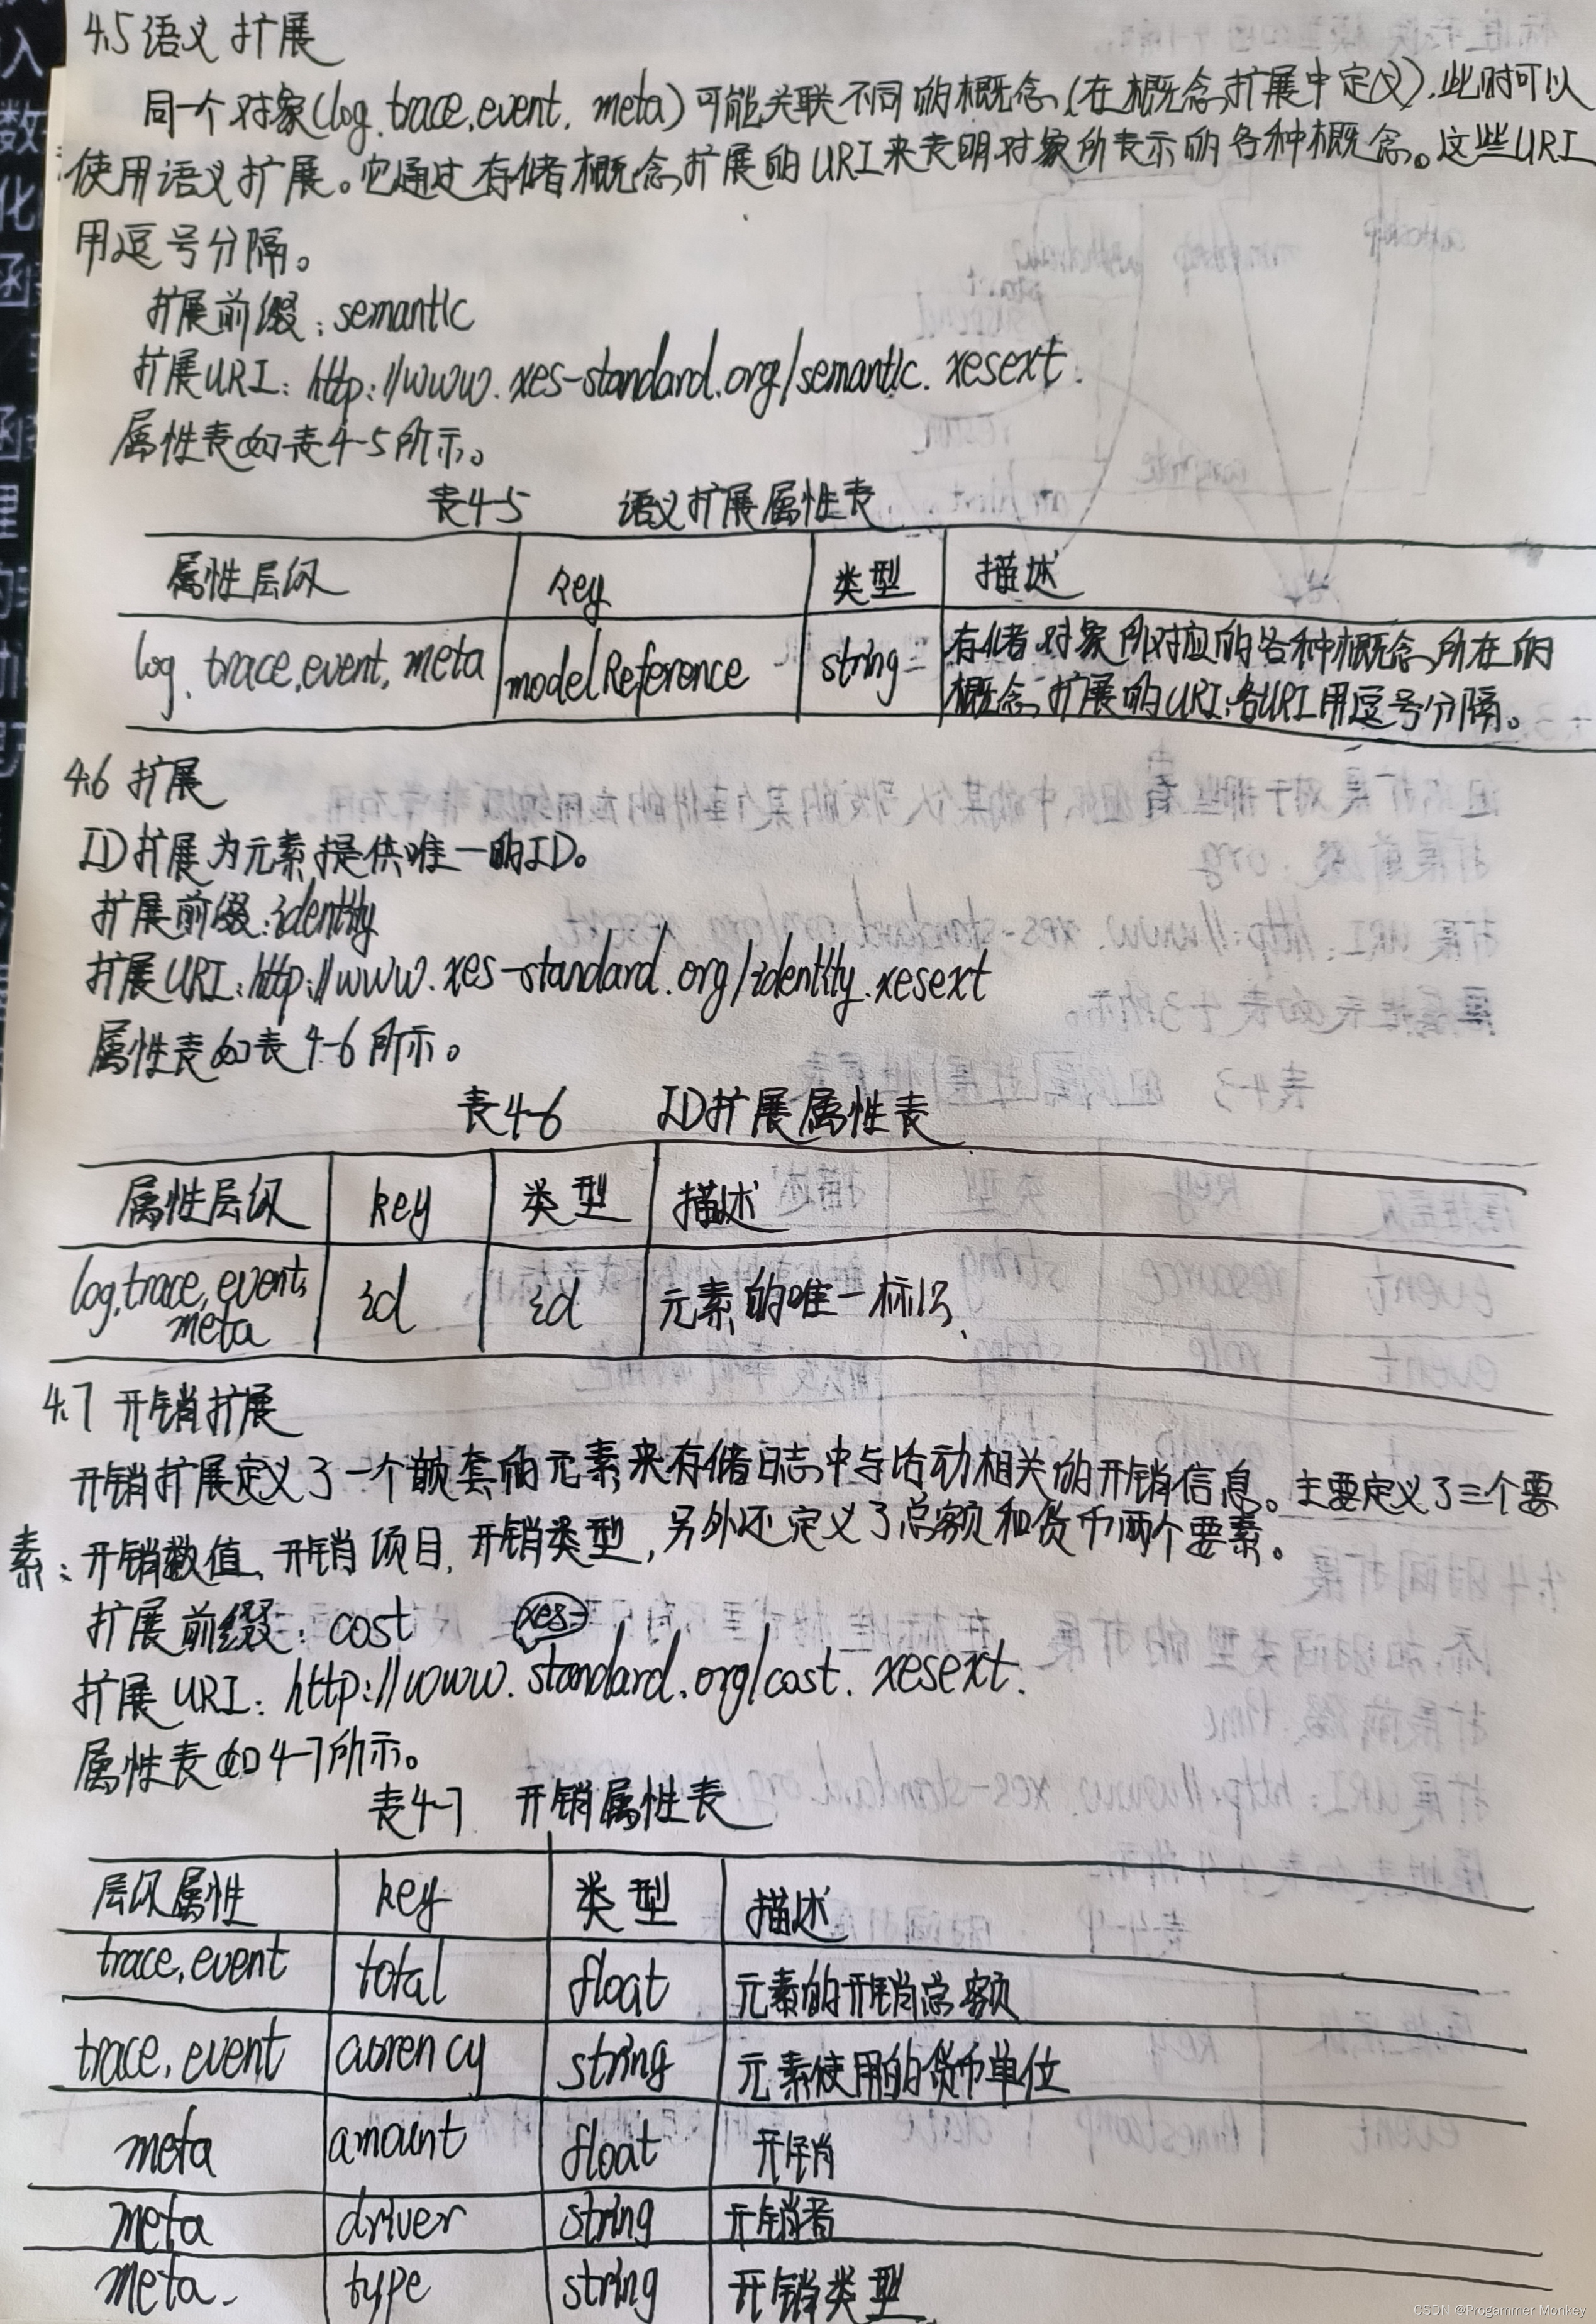 4.5 语义扩展
同一个对象(log, trace, event, meta)可能关联不同的概念(在概念扩展中定义), 此时可以
使用语义扩展。它通过存储概念扩展的URI来表明对象所表示的各种概念。这些URI
用逗号分隔。
扩展前缀: semantic
扩展URI: http://www.xes-standard.org/semantic.xesext.
属性表如表4-5所示。
表4-5 语义扩展属性表
属性层级 key 类型 描述
log, trace, event, meta modelReference string 存储对象所对应的各种概念所在的
概念扩展的URI, 各URI用逗号分隔。
4.6 扩展
ID扩展为元素提供唯一的ID。
扩展前缀: identity
扩展URI: http://www.xes-standard.org/identity.xesext
属性表如表4-6所示。
表4-6 ID扩展属性表
属性层级 key 类型 描述
log, trace, event, id id 元素的唯一标识
meta
4.7 开销扩展
开销扩展定义了一个嵌套的元素来存储日志中与活动相关的开销信息。主要定义了三个要
素: 开销数值, 开销项目, 开销类型, 另外还定义了总额和货币两个要素。
扩展前缀: cost
xes-
扩展URI: http://www.standard.org/cost.xesext.
属性表如4-7所示。
表4-7 开销属性表
层级属性 key 类型 描述
trace, event total float 元素的开销总额
trace, event string 元素使用的货币单位
meta amount float 开销
meta driver string 开销者
meta type string 开销类型
CSDN @Progammer Monkey